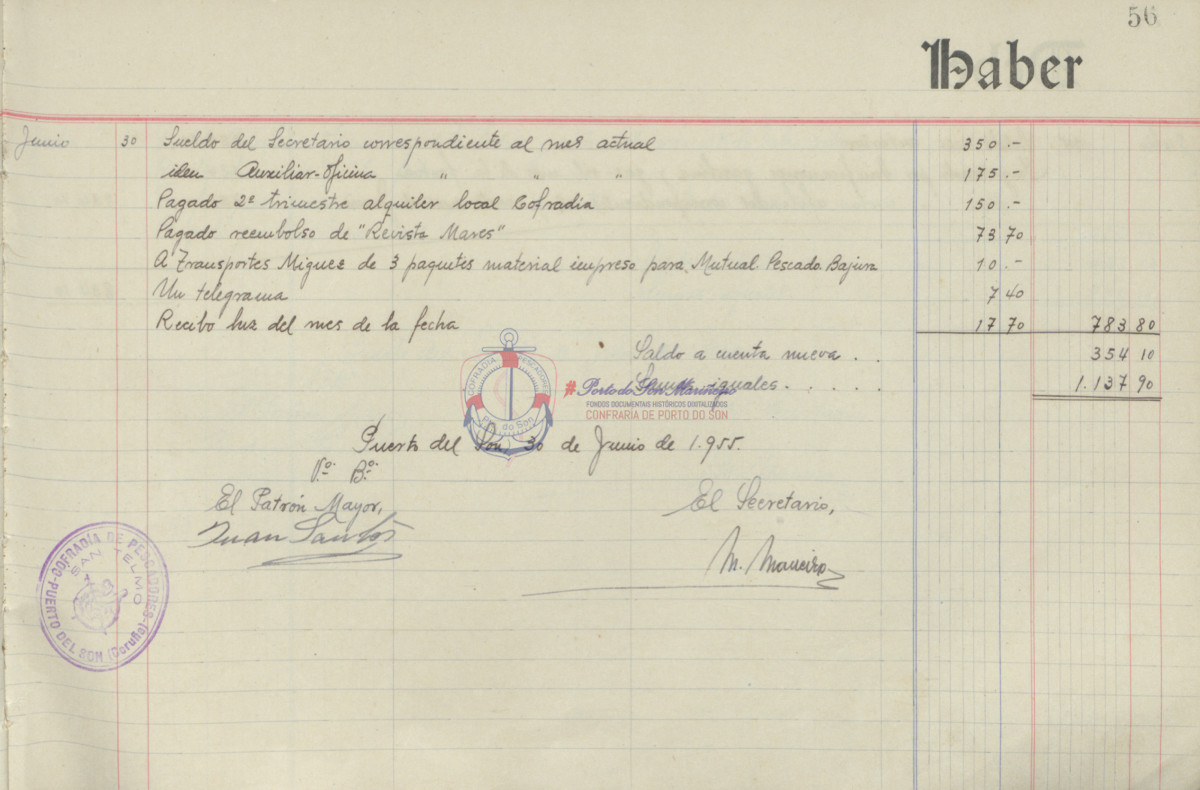 56
Haber
Junio 30 Sueldo del Secretario correspondiente al mes actual 350.-
idem Auxiliar-Oficina " " " 175.-
Pagado 2º trimestre alquiler local Cofradía 150.-
Pagado reembolso de "Revista Mares" 73 70
A Transportes Miguez de 3 paquetes material impreso para Mutual. Pescado. Bajura 10.-
Un telegrama 7 40
Recibo luz del mes de la fecha 17 70 783 80
Saldo a cuenta nueva . . 354 10
Sumas iguales . . . . . 1.137 90
COFRADIA PESCADORES
Pto. do Son
#Porto do Son Mariñeiro
FONDOS DOCUMENTAIS HISTÓRICOS DIXITALIZADOS
CONFRARÍA DE PORTO DO SON
Puerto del Son, 30 de Junio de 1.955.
Vº. Bº.
El Patrón Mayor,
El Secretario,
Juan Santos
M. Maneiro
COFRADÍA DE PESCADORES
SAN TELMO
PUERTO DEL SON (Coruña)